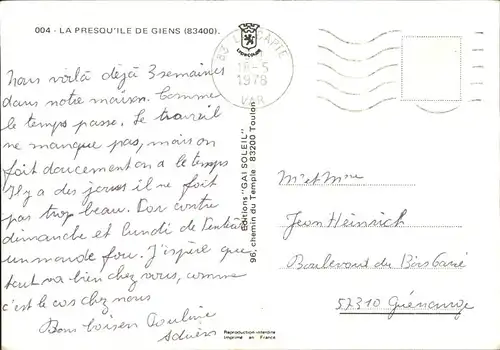 004 - LA PRESQU'ILE DE GIENS (83400).
LYONCOLOR
83 LA CAPTE
18-5
1978
VAR
Nous voilà déjà 3 semaines
dans notre maison. Comme
le temps passe. Le travail
ne manque pas, mais on
fait doucement on a le temps
Il y a des jours il ne fait
pas trop beau. Par contre
dimanche et lundi de Pentecôte
un monde fou. J'espère que
tout va bien chez vous, comme
c'est le cas chez nous
Bons baisers Pauline
Editions "GAI SOLEIL"
96, chemin du Temple 83200 Toulon
Mr et Mme
Jean Heinrich
Boulevard du Bois Carré
57310 Guénange
Reproduction interdite
Imprimé en France